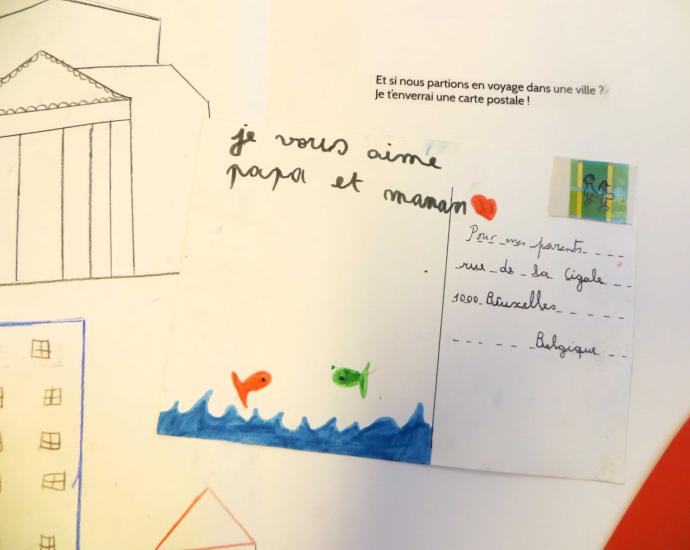 Et si nous partions en voyage dans une ville ?
Je t'enverrai une carte postale !
je vous aime
papa et maman
Pour mes parents
rue de la Cigale
1000 Bruxelles
Belgique